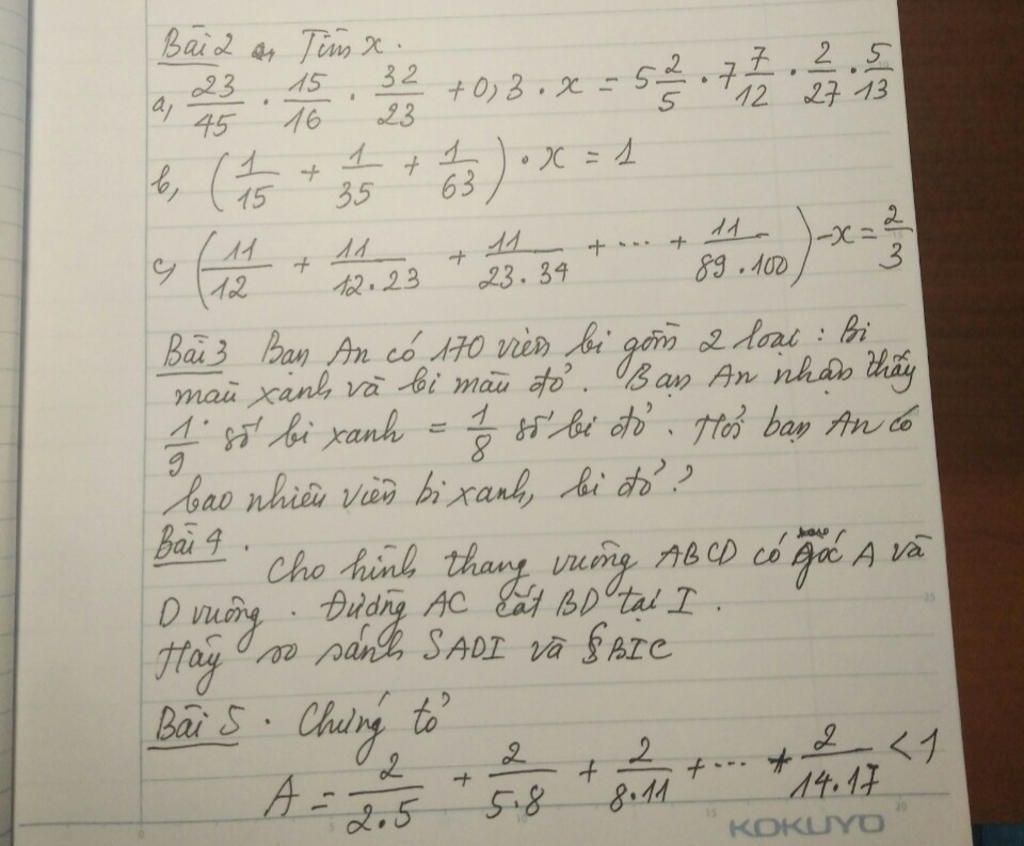 Bài 2 a, Tìm x.
a, 23/45 . 15/16 . 32/23 + 0,3 . x = 5 2/5 . 7 7/12 . 2/27 . 5/13
b, (1/15 + 1/35 + 1/63) . x = 1
c, (11/12 + 11/12.23 + 11/23.34 + ... + 11/89.100) - x = 2/3
Bài 3 Bạn An có 170 viên bi gồm 2 loại : Bi
màu xanh và bi màu đỏ. Bạn An nhận thấy
1/9 số bi xanh = 1/8 số bi đỏ. Hỏi bạn An có
bao nhiêu viên bi xanh, bi đỏ ?
Bài 4.
Cho hình thang vuông ABCD có góc A và
D vuông. Đường AC cắt BD tại I.
Hãy so sánh SADI và SBIC
Bài 5. Chứng tỏ
A = 2/2.5 + 2/5.8 + 2/8.11 + ... + 2/14.17 < 1
KOKUYO